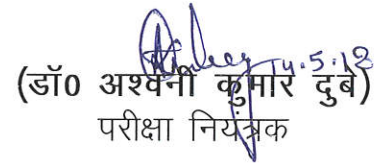 14.5.18
(डॉ0 अश्वनी कुमार दुबे)
परीक्षा नियंत्रक